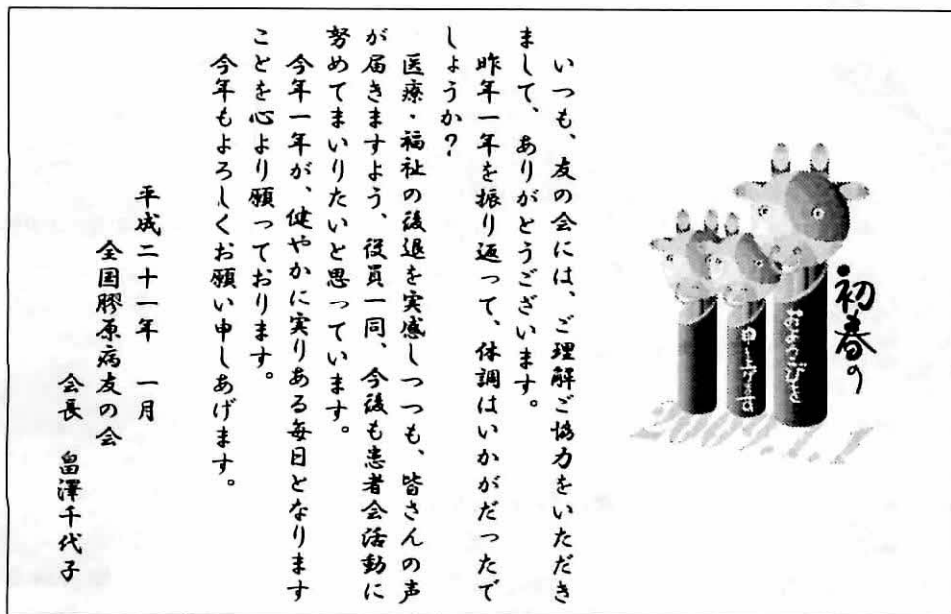 初春の
およろこびを
申し上げます
いつも、友の会には、ご理解ご協力をいただき
まして、ありがとうございます。
昨年一年を振り返って、体調はいかがだったで
しょうか?
医療・福祉の後退を実感しつつも、皆さんの声
が届きますよう、役員一同、今後も患者会活動に
努めてまいりたいと思っています。
今年一年が、健やかに実りある毎日となります
ことを心より願っております。
今年もよろしくお願い申しあげます。
平成二十一年 一月
全国膠原病友の会
会長 畠澤千代子